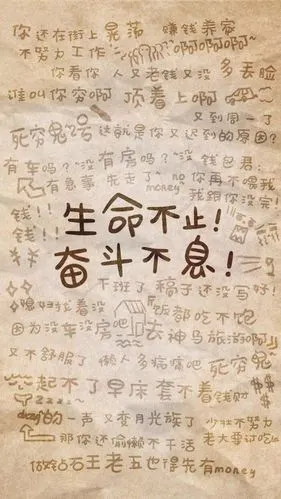 你还在街上晃荡 赚钱养家
不努力工作 啊啊啊啊~
你看你 人又老钱又没 多丢脸
谁叫你穷啊 顶着上啊
又到周一了
死穷鬼 这就是你又迟到的原因?
有车吗?没有房吗?没钱包君:
有急事 先走了~ no money 你再不喂我
我跟你没完!
钱!!
钱!!
生命不止!
奋斗不息!
不下班了 稿子还没写好!
媳妇找着没 饭都吃不饱
因为没车没房吧 去神马旅游啊
又不舒服了 懒人多病痛吧 死穷鬼
起不了早床 套不着钱财
zzzz~ $$$
的一声 又变月光族了 少壮不努力
那你还偷懒不干活 老大要讨吃
做钻石王老五也得先有money